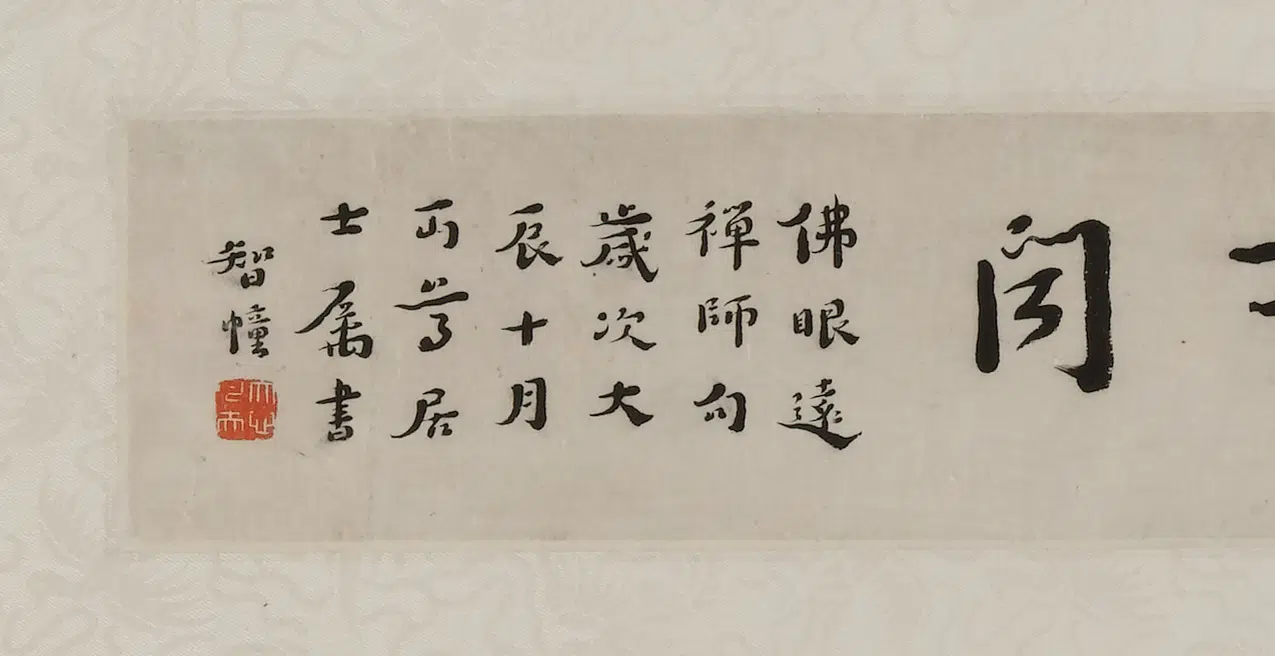 閒
佛眼遠
禪師句
歲次大
辰十月
丏尊居
士屬書
智幢